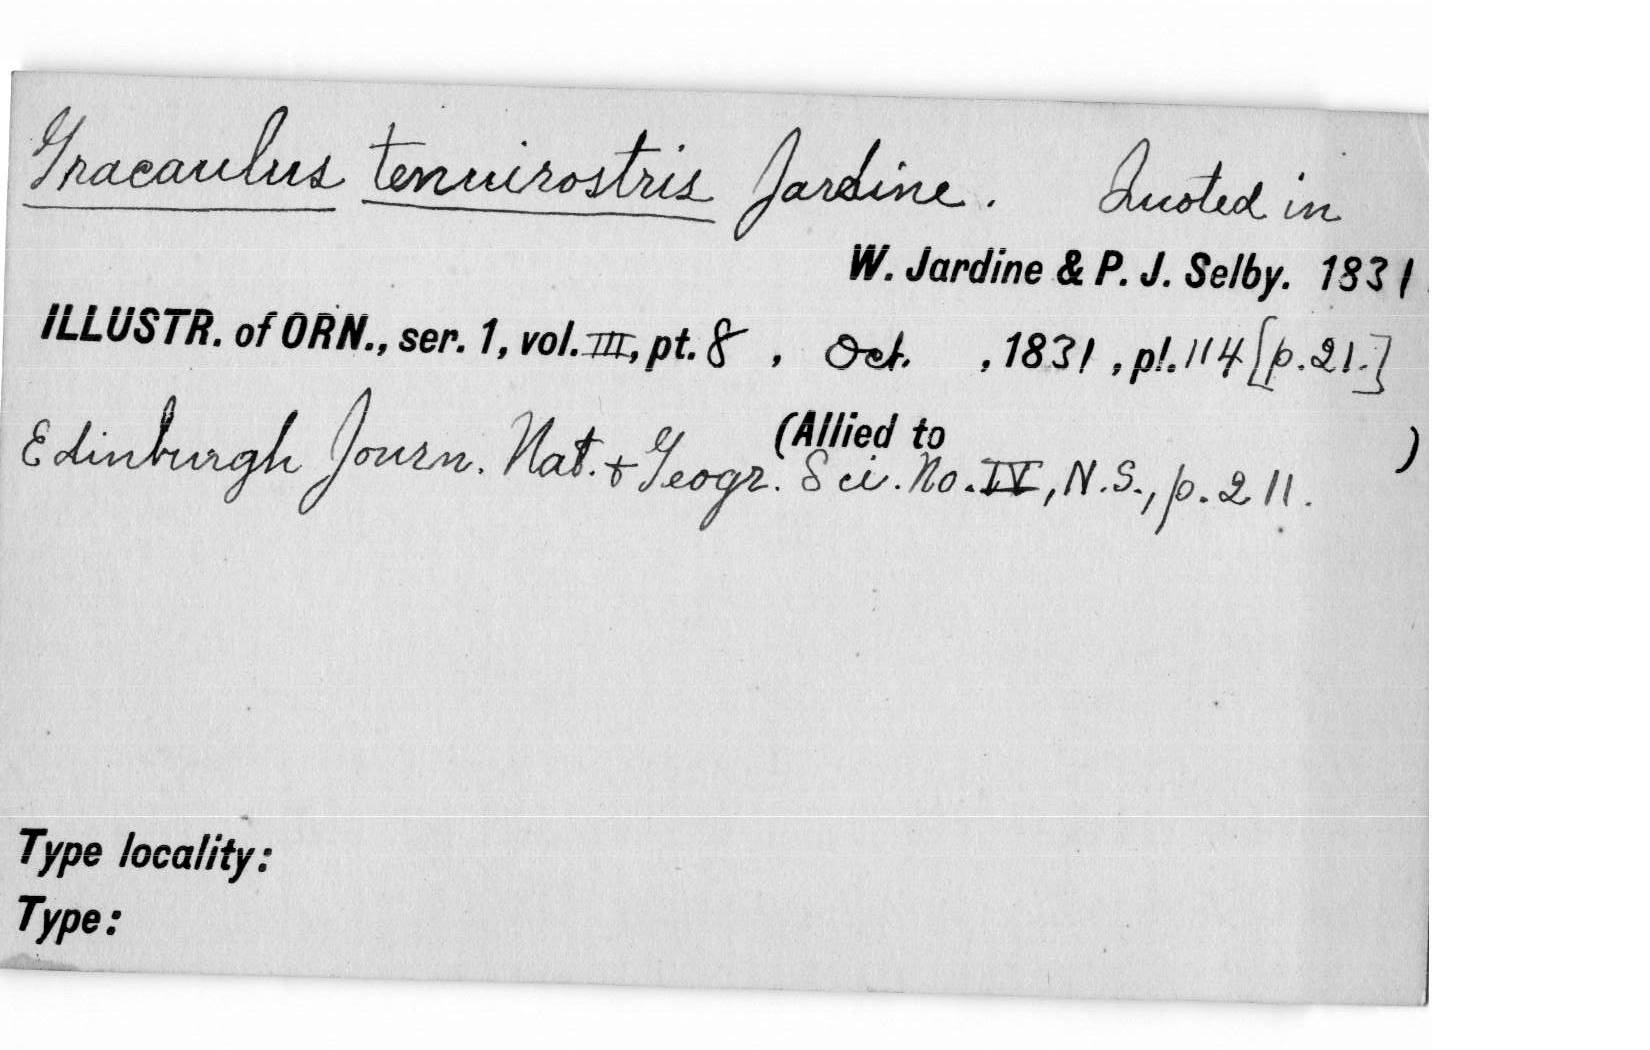 Gracaulus tenuirostris Jardine. Quoted in
W. Jardine & P. J. Selby. 1831
ILLUSTR. of ORN., ser. 1, vol. III, pt. 8 , Oct. , 1831 , pl. 114 [p. 21.]
(Allied to )
Edinburgh Journ. Nat. & Geogr. Sci. No. IV, N.S., p. 211.
Type locality:
Type: